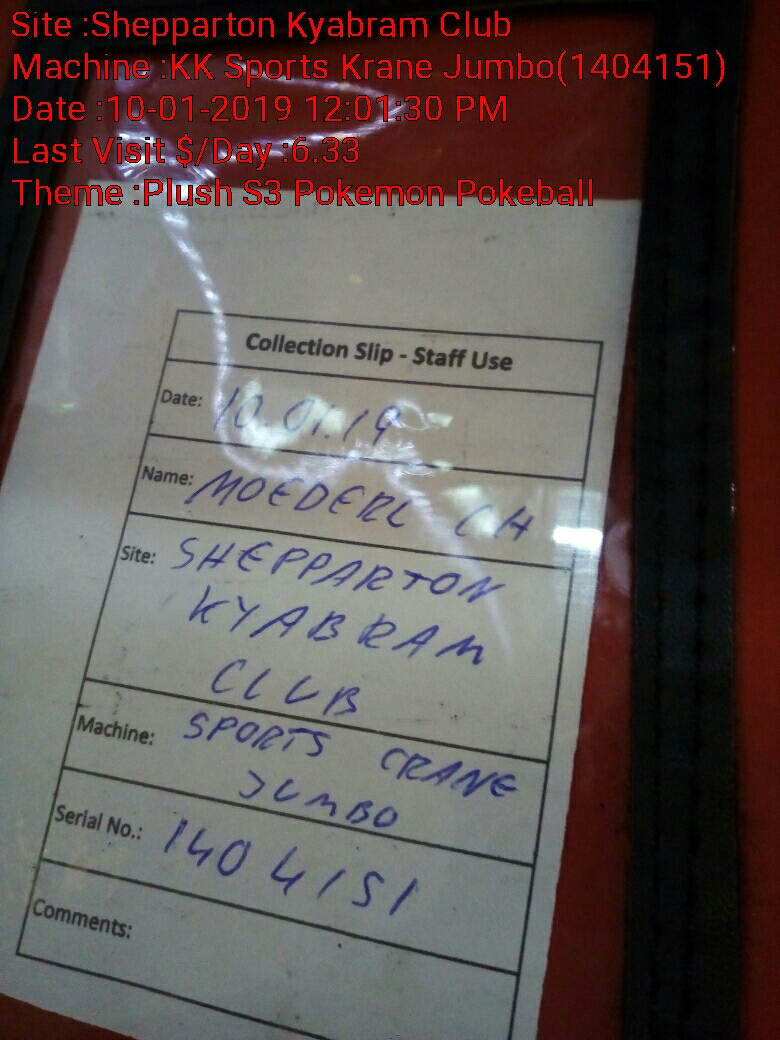 Site :Shepparton Kyabram Club
Machine :KK Sports Krane Jumbo(1404151)
Date :10-01-2019 12:01:30 PM
Last Visit $/Day :6.33
Theme :Plush S3 Pokemon Pokeball
Collection Slip - Staff Use
Date: 10.01.19
Name: MOEDERL CH
Site: SHEPPARTON
KYABRAM
CLUB
Machine: SPORTS CRANE
JUMBO
Serial No.: 1404151
Comments: